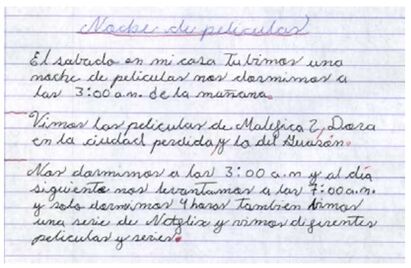 Noche de peliculas
El sabado en mi casa tubimos una
noche de peliculas nos dormimos a
las 3:00 a.m. de la mañana.
Vimos las peliculas de Malefica 2, Dora
en la ciudad perdida, y la del Guasón.
Nos dormimos a las 3:00 a.m y al día
siguiente nos levantamos a las 7:00 a.m.
y solo dormimos 4 horas tambien vimos
una serie de Notglix y vimos diferentes
peliculas y series.